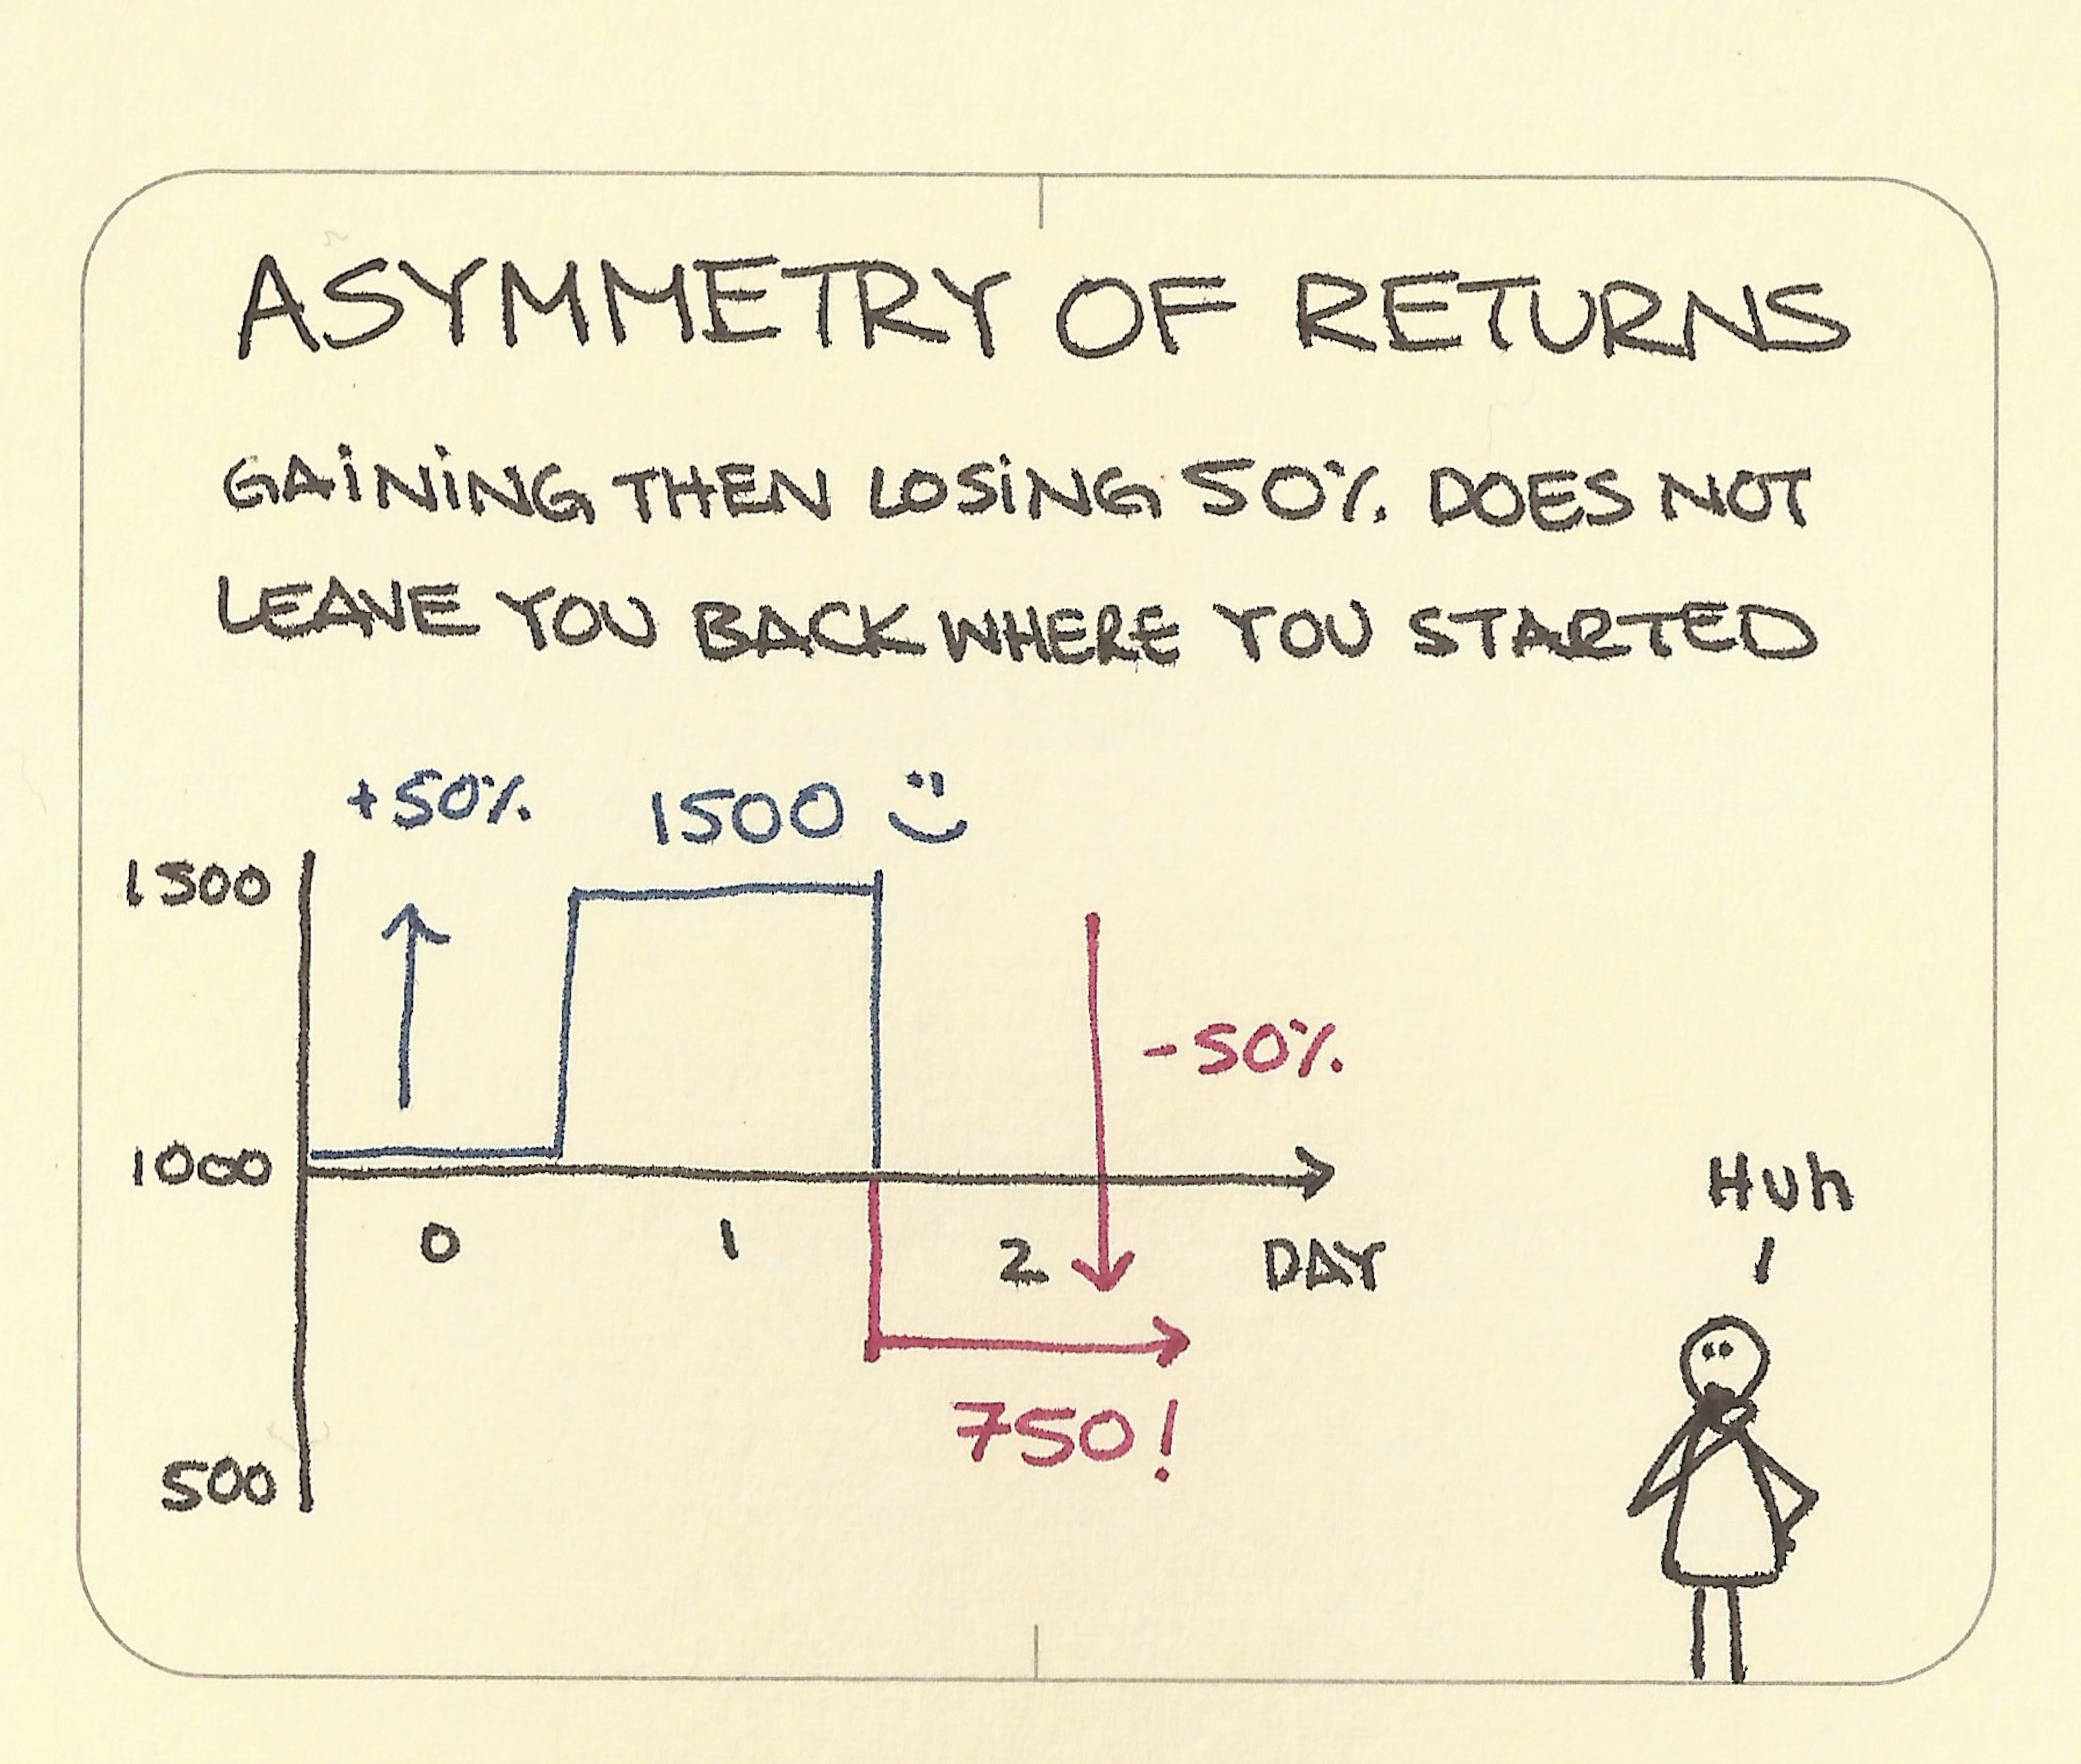 ASYMMETRY OF RETURNS
GAINING THEN LOSING 50% DOES NOT
LEAVE YOU BACK WHERE YOU STARTED
+50% 1500
1500
-50%
1000
Huh
0 1 2 DAY
750!
500